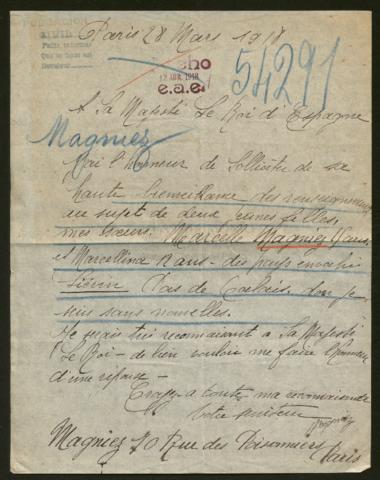 Paris 28 Mars 1918
CIVIL
Hecho
12 ABR. 1918
e.a.e.
54291
A Sa Majesté Le Roi d'Espagne
Magniez
J'ai l'honneur de solliciter de sa
haute bienveillance des renseignements
au sujet de deux jeunes filles,
mes sœurs. Marcelle Magniez
et Marcellina 12 ans - des pays envahis
Liévin Pas de Calais. dont je
suis sans nouvelles.
Je serais très reconnaissant à Sa Majesté
Le Roi - de bien vouloir me faire l'honneur
d'une réponse -
Croyez à toute ma reconnaissance
Votre serviteur
Magniez
Magniez 70 Rue des Poissonniers Paris